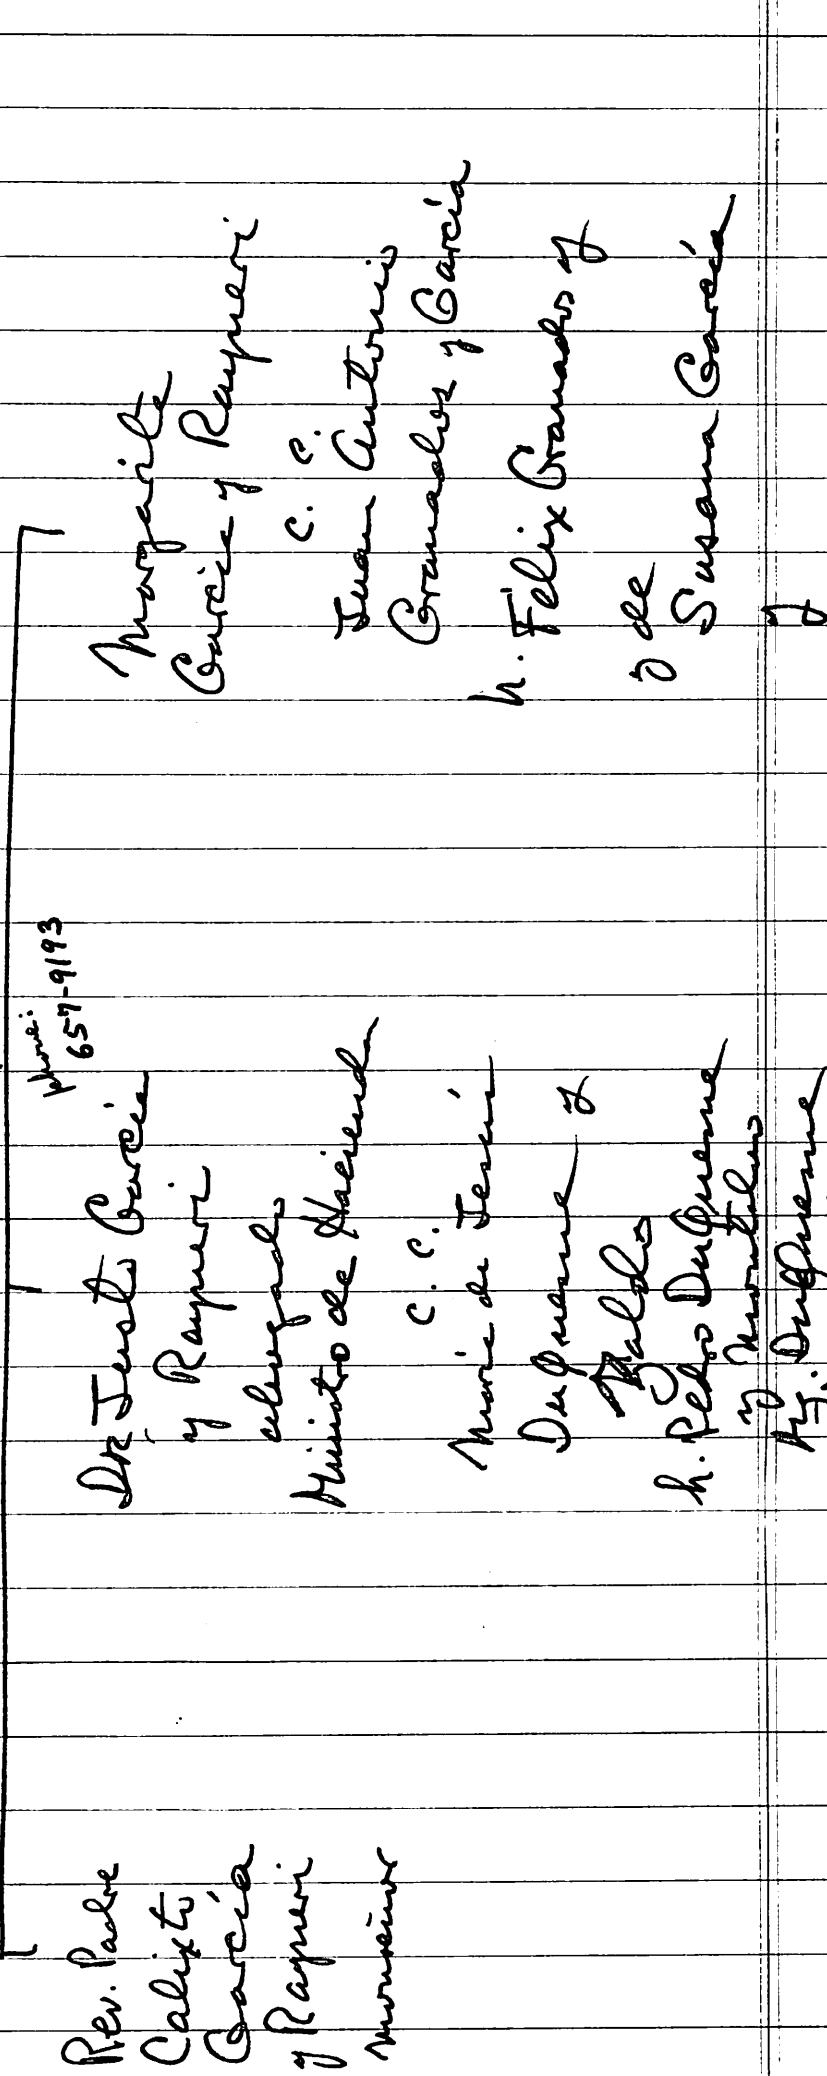 Rev. Padre
Calixto
García
y Rayneri
monseñor
phone:
657-9193
Dr Justo García
y Rayneri
abogado
Ministro de Hacienda
c. c.
María de Jesús
DuQuesne y
h. Pedro DuQuesne
y Montalvo
DuQuesne
Margarita
García y Rayneri
c. c.
Juan Antonio
Granados y García
h. Félix Granados y
y de
Susana García
y